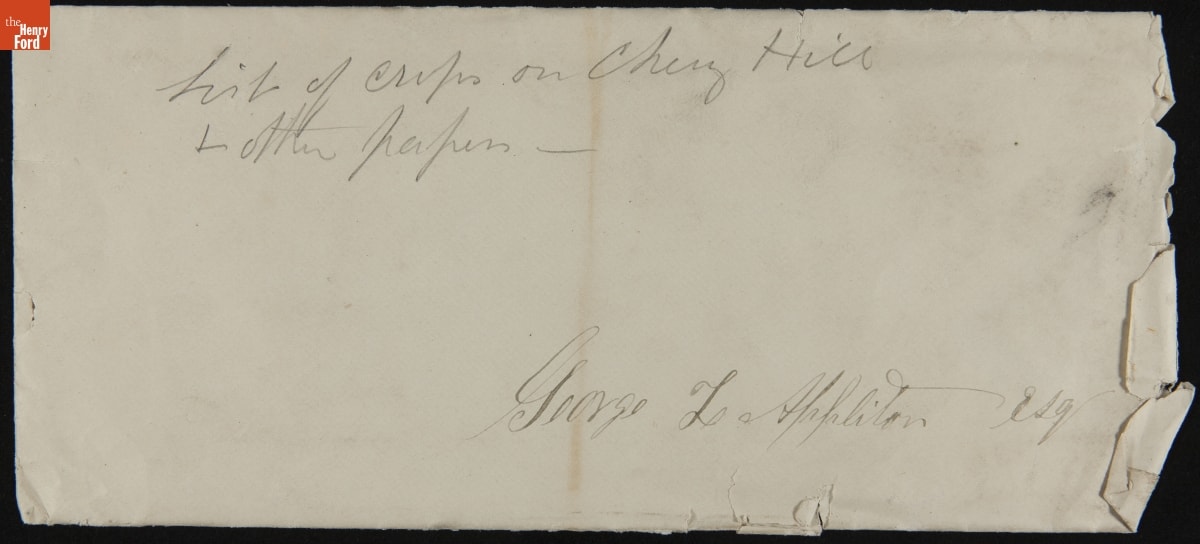 the
Henry
Ford
List of crops on Cherry Hill
+ other papers —
George L Appleton Esq